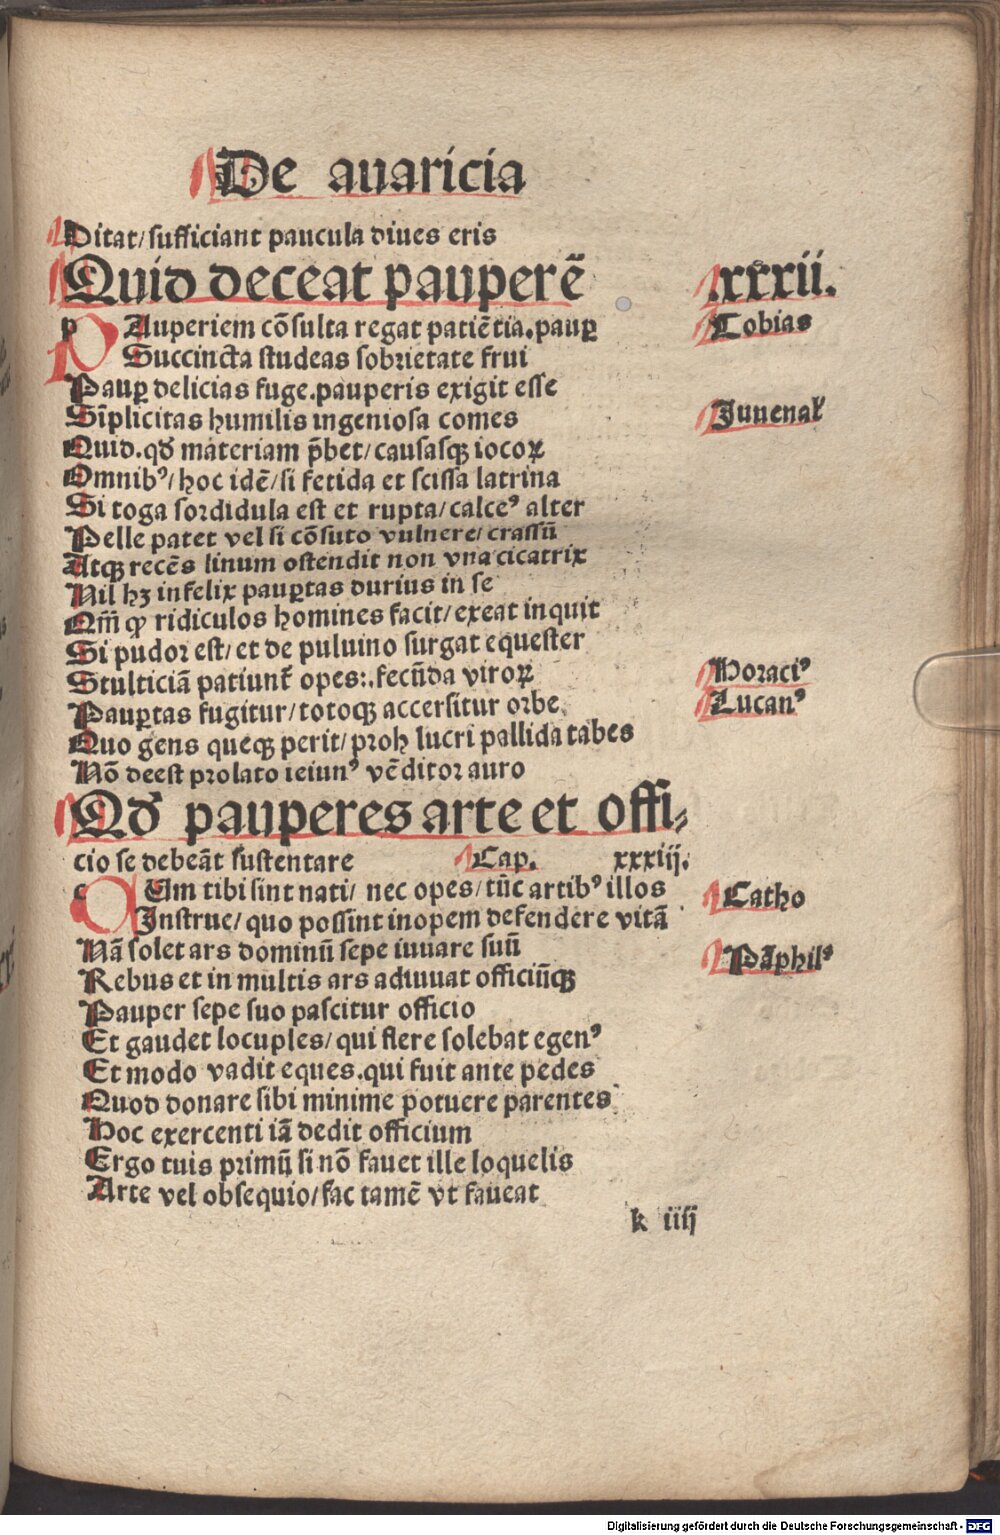 De auaricia
Ditat/ sufficiant paucula diues eris
Quid deceat pauperē .xxxii.
PAuperiem cōsulta regat patiētia.paup̲ Tobias
Succincta studeas sobrietate frui
Paup̲ delicias fuge.pauperis exigit esse
Sīplicitas humilis ingeniosa comes Juuenal̛
Quid.qd̛ materiam p̄bet/ causasqꝫ iocoꝝ
Omnibꝰ/ hoc idē/ si fetida et scissa latrina
Si toga sordidula est et rupta/ calceꝰ alter
Pelle patet vel si cōsuto vulnere/ crassū
Atqꝫ recēs linum ostendit non vna cicatrix
Nil hꝫ infelix paup̲tas durius in se
Qm̄ ꝙ ridiculos homines facit/ exeat inquit
Si pudor est/ et de puluino surgat equester
Stulticiā patiunt̛ opes:.fecūda viroꝝ Horaciꝰ
Paup̲tas fugitur/ totoqꝫ accersitur orbe. Lucanꝰ
Quo gens queqꝫ perit/ proh lucri pallida tabes
Nō deest prolato ieiunꝰ vēditor auro
Qd̛ pauperes arte et offi⸗
cio se debeāt sustentare Cap. xxxiij.
CUm tibi sint nati/ nec opes/ tūc artibꝰ illos Catho
Instrue/ quo possint inopem defendere vitā
Nā solet ars dominū sepe iuuare suū Pāphilꝰ
Rebus et in multis ars adiuuat officiūqꝫ
Pauper sepe suo pascitur officio
Et gaudet locuples/ qui flere solebat egenꝰ
Et modo vadit eques.qui fuit ante pedes
Quod donare sibi minime potuere parentes
Hoc exercenti iā dedit officium
Ergo tuis primū si nō fauet ille loquelis
Arte vel obsequio/ fac tamē vt faueat
k iiij
Digitalisierung gefördert durch die Deutsche Forschungsgemeinschaft - DFG